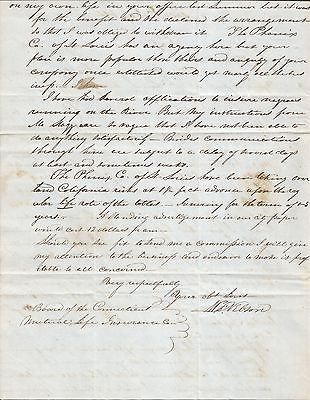 on my own life in your office last Summer but it was
for the benefit and she declined the arrangement
so that I was obliged to withdraw it. The Phoenix
Co. of St Louis has an agency here but your
plan is more popular than theirs and an agency of your
company once established would get nearly all the business
I have had several applications to insure negroes
running on the River But my instructions from
are so vague that I have not been able to
do anything satisfactorily Besides communications
through him are subject to a delay of several days
at least and sometimes weeks.
The Phenix Co. of St Louis have been taking over
land California risks at 1 pr ct advance upon the reg
ular life rate of the tables - Insuring for the term of
years - A standing advertizement in our city paper
would cost 12 dollars pr an -
Should you see fit to send me a commission I will give
my attention to the business and endeavor to make it prof
itable to all concerned
Very respectfully
Your obt Servt
Nelson
Board of the Connecticut
Mutual Life Insurance Co